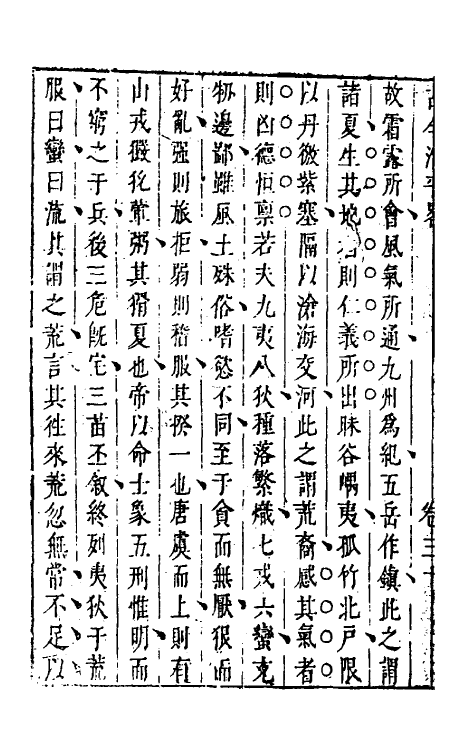 故霜露所會風氣所通九州爲紀五岳作鎮此之謂
諸夏生其地者則仁義所出昧谷嵎夷孤竹北戶限
以丹徼紫塞隔以滄海交河此之謂荒裔感其氣者
則凶德恒禀若夫九夷八狄種落繁熾七戎六蠻充
牣邊鄙雖風土殊俗嗜慾不同至于貪而無厭狠而
好亂強則旅拒弱則稽服其揆一也唐虞而上則有
山戎獫狁葷粥其猾夏也帝以命士象五刑惟明而
不窮之于兵後三危旣宅三苗丕敘終列夷狄于荒
服曰蠻曰流其謂之荒言其徃來荒忽無常不足以